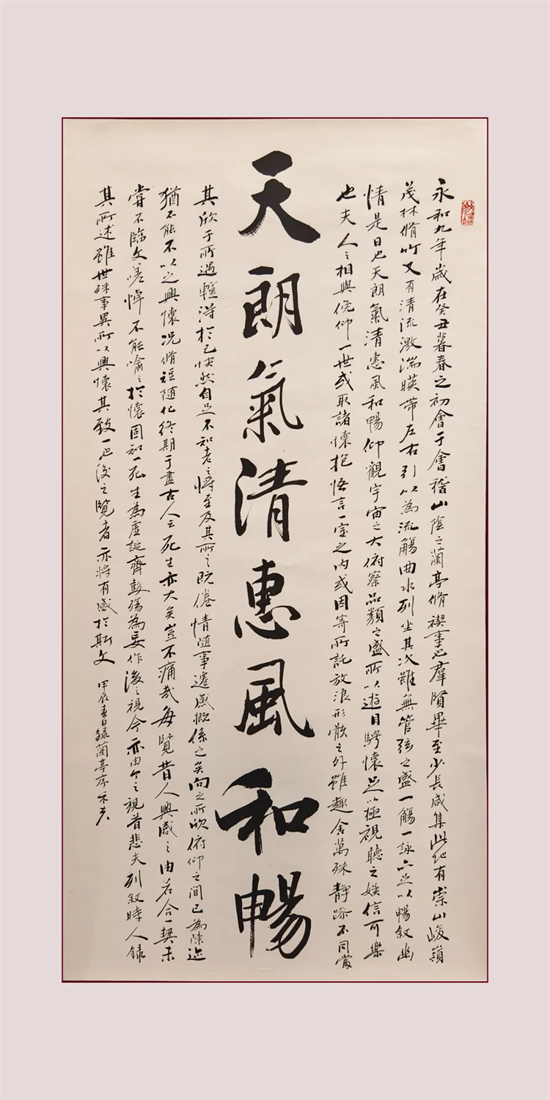 永和九年歲在癸丑暮春之初會于會稽山陰之蘭亭脩禊事也羣賢畢至少長咸集此地有崇山峻嶺
茂林脩竹又有清流激湍暎帶左右引以為流觴曲水列坐其次雖無管弦之盛一觴一詠亦足以暢叙幽
情是日也天朗氣清惠風和暢仰觀宇宙之大俯察品類之盛所以遊目騁懷足以極視聽之娛信可樂
也夫人之相與俛仰一世或取諸懷抱悟言一室之內或因寄所託放浪形骸之外雖趣舍萬殊靜躁不同當
天朗氣清惠風和暢
其欣于所遇輒得於己快然自足不知老之將至及其所之既倦情隨事遷感慨係之矣向之所欣俯仰之間已為陳迹
猶不能不以之興懷況脩短隨化終期于盡古人云死生亦大矣豈不痛哉每覽昔人興感之由若合一契未
嘗不臨文嗟悼不能喻之於懷固知一死生為虛誕齊彭殤為妄作後之視今亦由今之視昔悲夫列叙時人錄
其所述雖世殊事異所以興懷其致一也後之覽者亦將有感於斯文 甲辰春日錄蘭亭序